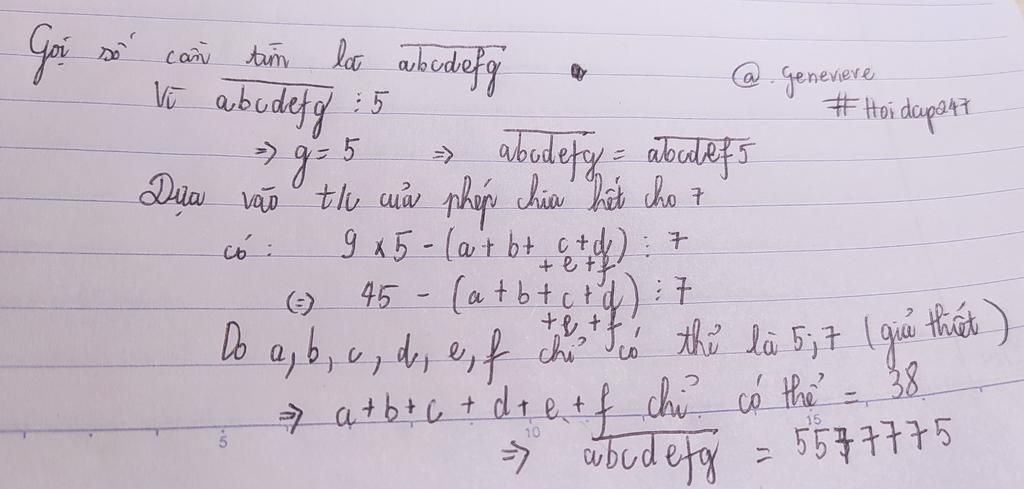 Gọi số cần tìm là abcdefg
@.genevieve
#Hoidap247
Vì abcdefg ⋮ 5
=> g = 5 => abcdefg = abcdef5
Dựa vào t/c của phép chia hết cho 7
có: 9 x 5 - (a + b + c + d + e + f) ⋮ 7
(=) 45 - (a + b + c + d + e + f) ⋮ 7
Do a, b, c, d, e, f chỉ có thể là 5; 7 (giả thiết)
=> a + b + c + d + e + f chỉ có thể = 38
5 10 15
=> abcdefg = 5577775